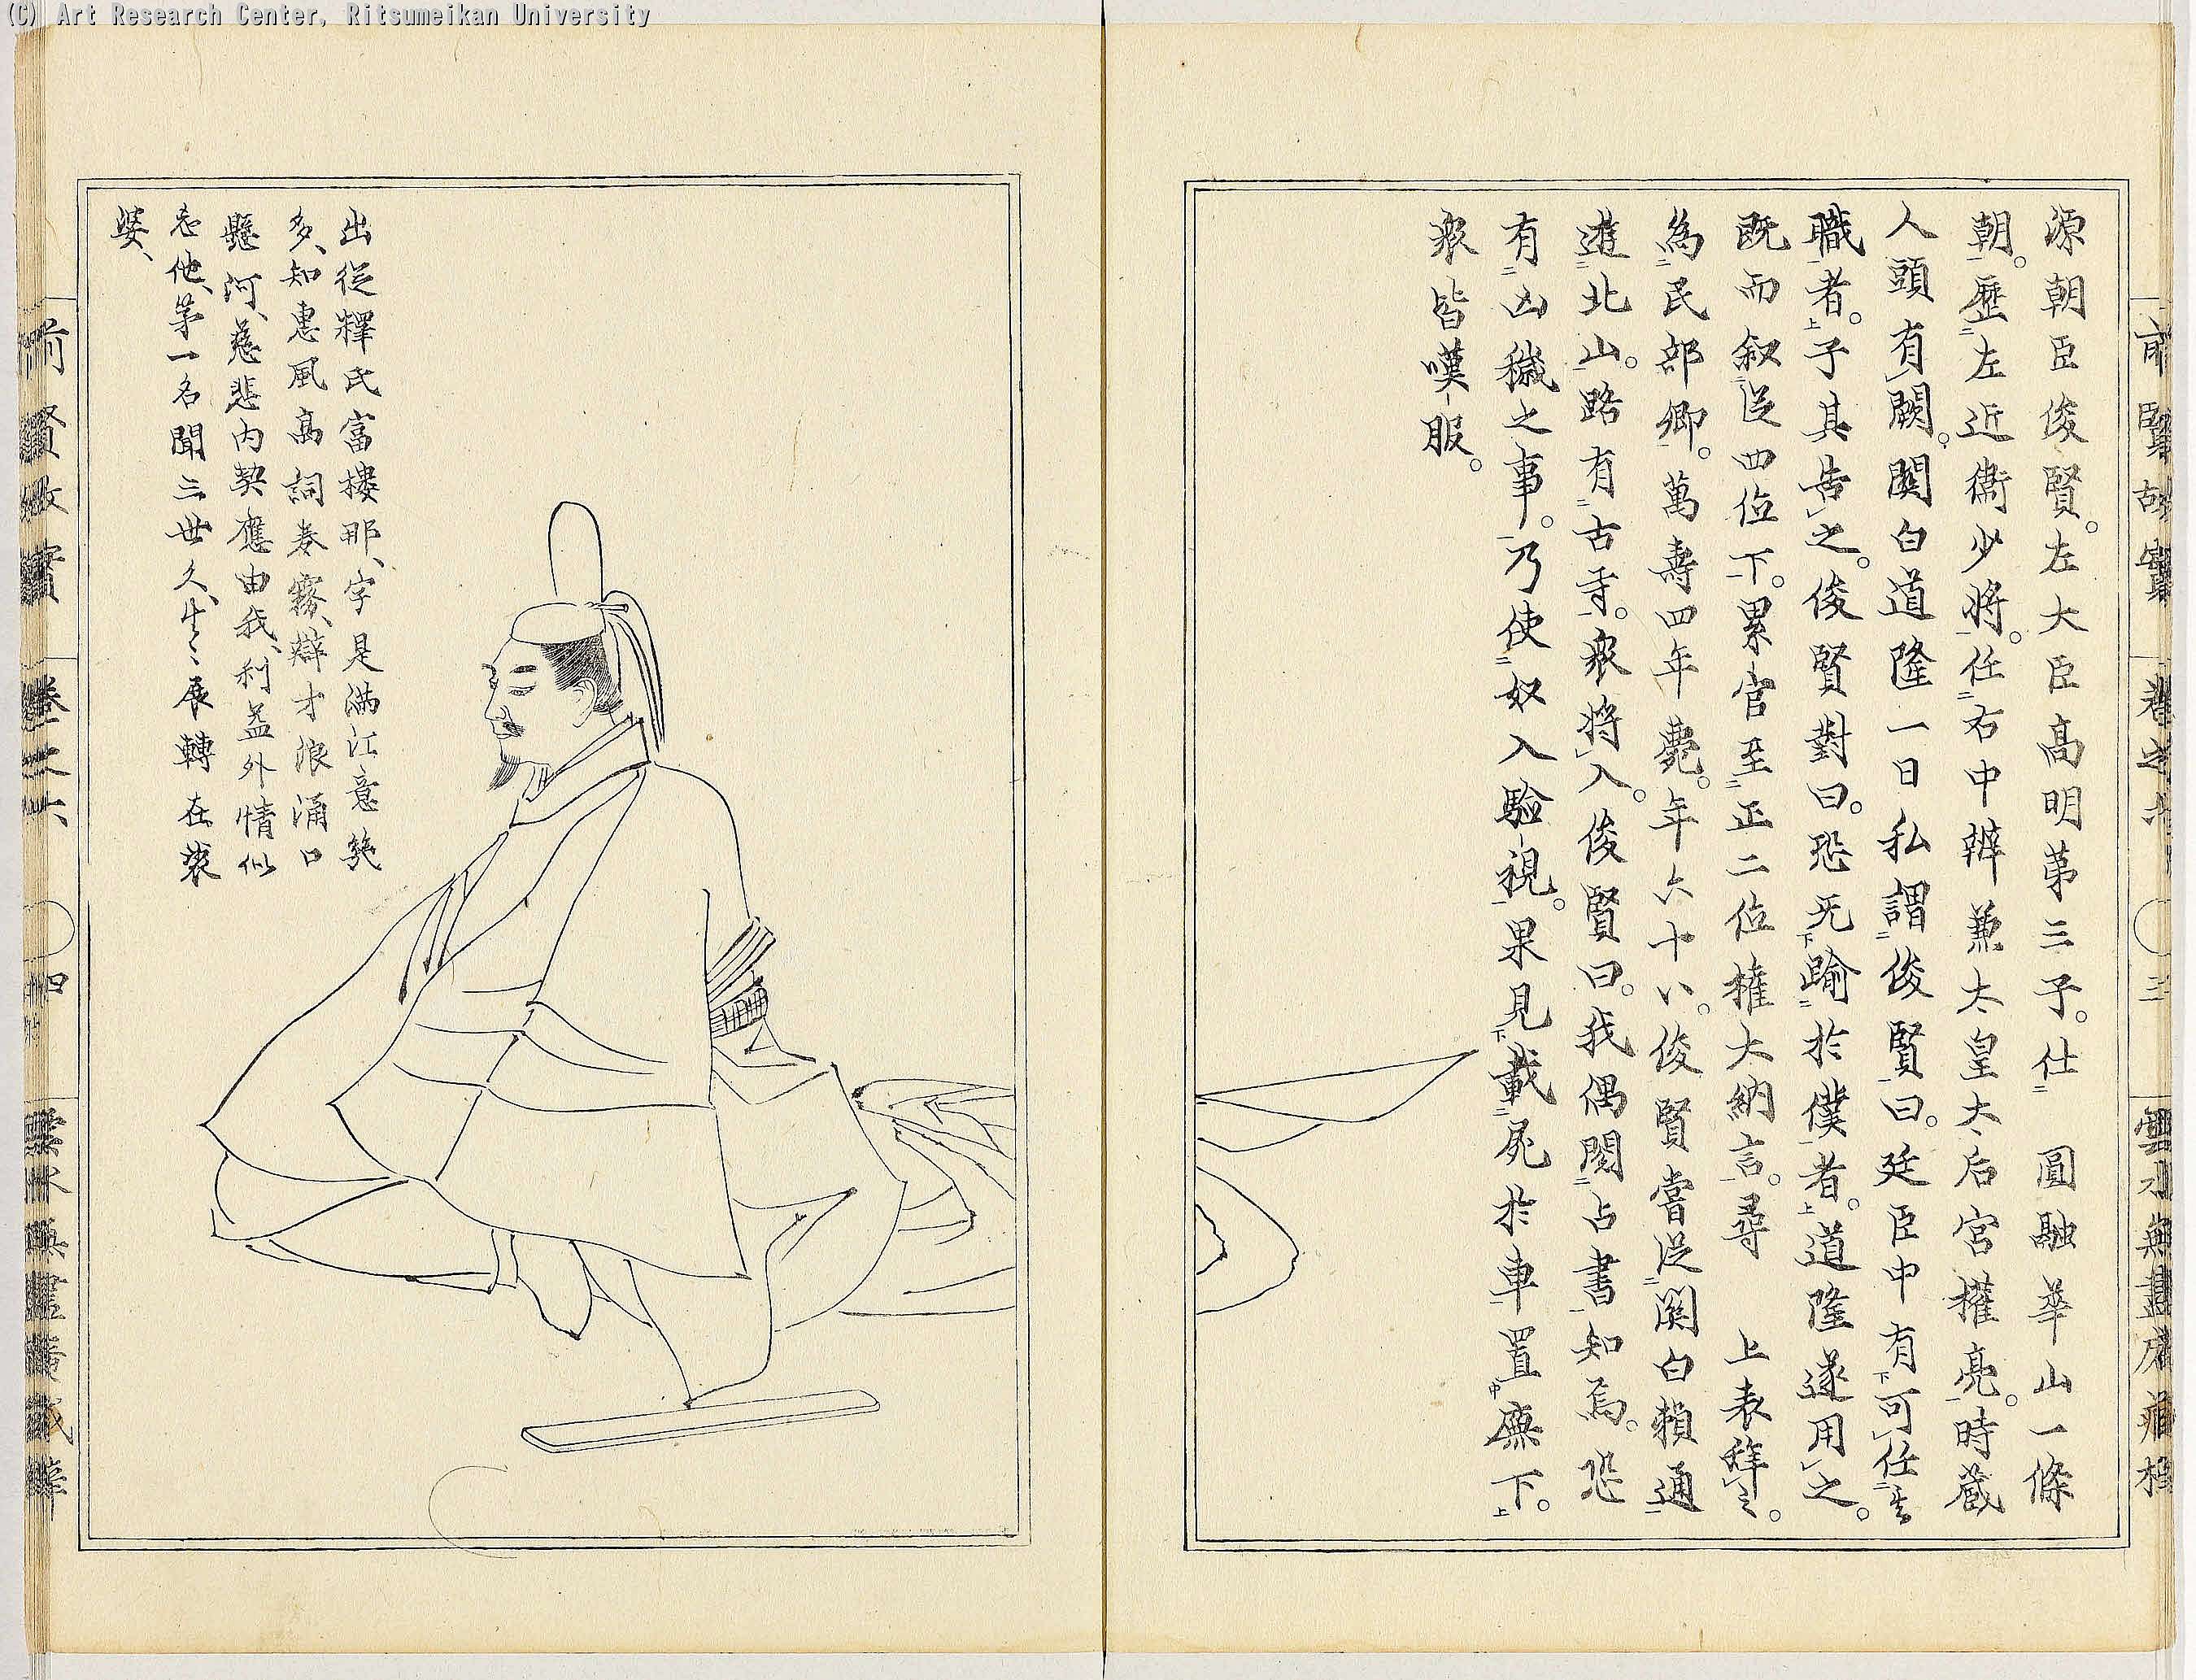 (C) Art Research Center, Ritsumeikan University
前賢故實 卷之六 三 雲水無盡庵藏
源朝臣俊賢。左大臣高明第三子。仕 圓融華山一條
朝。歷左近衞少將。任右中辨兼太皇太后宮權亮。時藏
人頭有闕。關白道隆一日私謂俊賢曰。廷臣中有可任其
職者。子其告之。俊賢對曰。恐无踰於僕者。道隆遂用之。
既而叙從四位下。累官至正二位權大納言。尋 上表辭之。
為民部卿。萬壽四年薨。年六十八。俊賢嘗從關白賴通
遊北山。路有古寺。衆將入。俊賢曰。我偶閱占書知焉。恐
有凶穢之事。乃使奴入驗視。果見載屍於車置廡下。
衆皆嘆服。
出從釋氏富樓那、字是滿江意氣
多、知惠風高詞卷霧、辯才浪涌口
懸河、慈悲內契應由我、利益外情似
忘他、第一名聞三世久、生〻展轉在裟
婆、
前賢故實 卷之六 四 雲水無盡庵藏